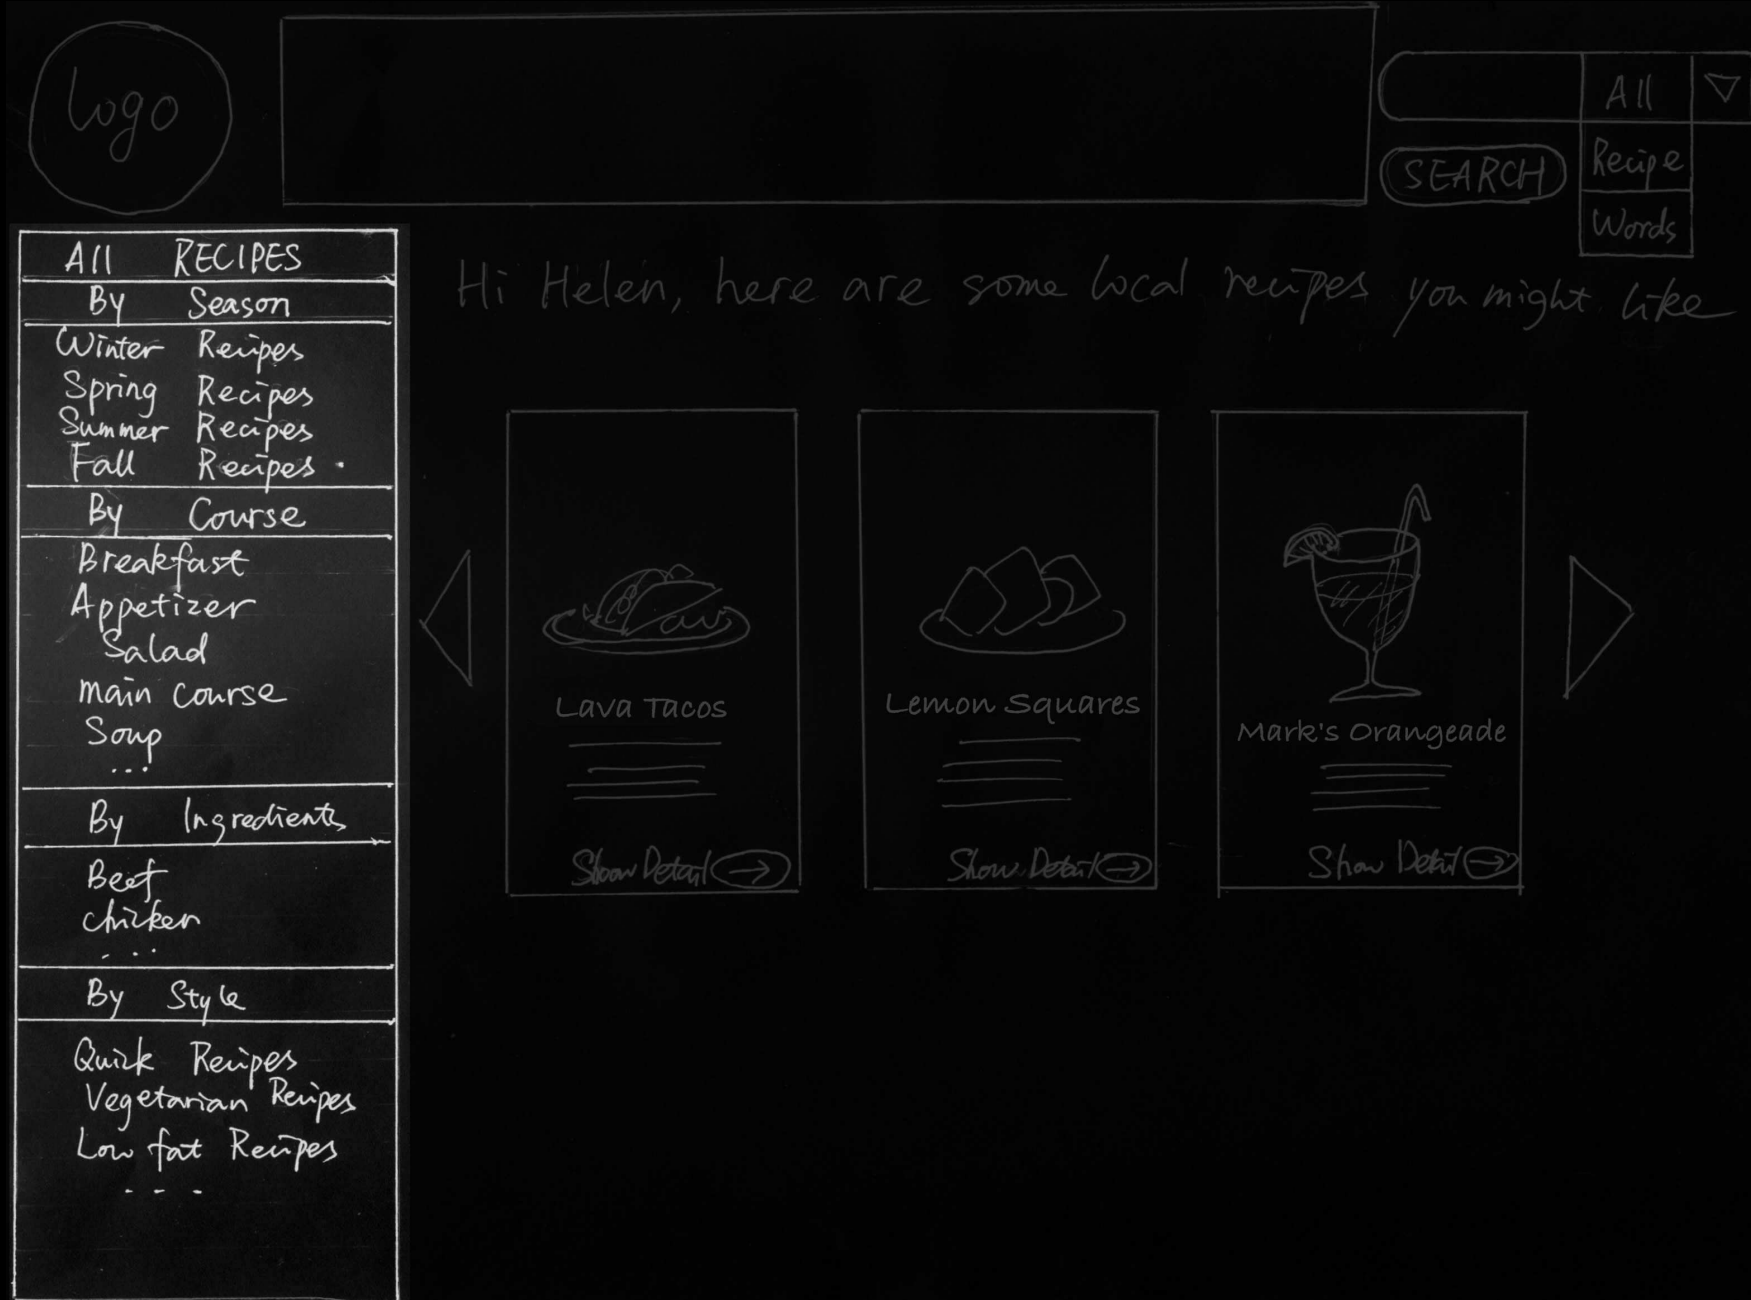 Logo
All
Recipe
SEARCH
Words
All RECIPES
By Season
Winter Recipes
Spring Recipes
Summer Recipes
Fall Recipes .
By Course
Breakfast
Appetizer
Salad
main course
Soup
...
By Ingredients
Beef
chicken
...
By Style
Quick Recipes
Vegetarian Recipes
Low fat Recipes
...
Hi Helen, here are some local recipes you might like
Lava Tacos
Show Detail →
Lemon Squares
Show Detail →
Mark's Orangeade
Show Detail →